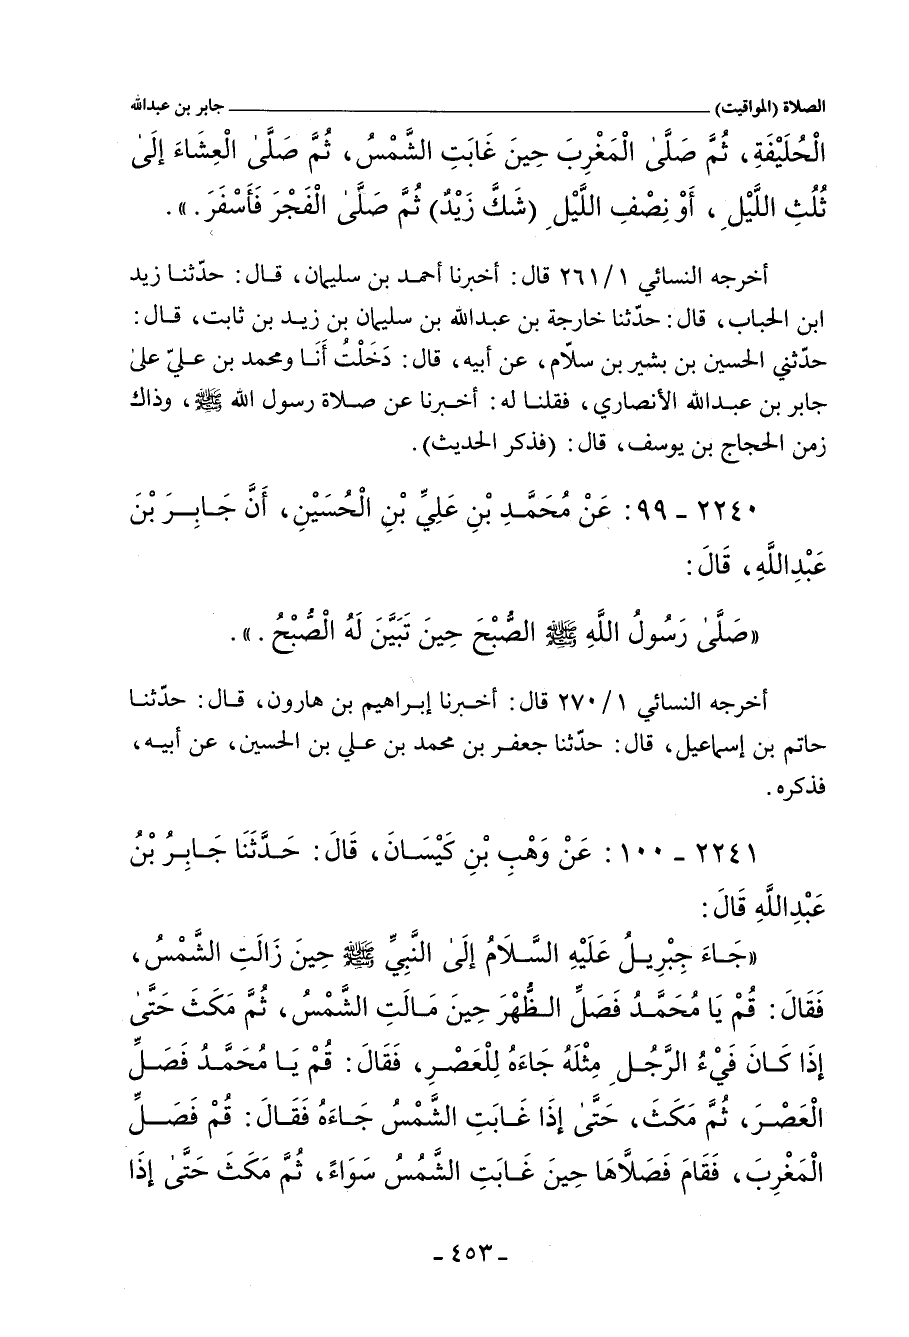 الصلاة (المواقيت) ــــــــــــــــــــ جابر بن عبدالله
الْحُلَيْفَةِ، ثُمَّ صَلَّىٰ الْمَغْرِبَ حِينَ غَابَتِ الشَّمْسُ، ثُمَّ صَلَّىٰ الْعِشَاءَ إِلَىٰ
ثُلُثِ اللَّيْلِ، أَوْ نِصْفِ اللَّيْلِ (شَكَّ زَيْدٌ) ثُمَّ صَلَّىٰ الْفَجْرَ فَأَسْفَرَ.».
أخرجه النسائي ٢٦١/١ قال: أخبرنا أحمد بن سليمان، قال: حدّثنا زيد
ابن الحباب، قال: حدّثنا خارجة بن عبدالله بن سليمان بن زيد بن ثابت، قال:
حدّثني الحسين بن بشير بن سلّام، عن أبيه، قال: دَخَلْتُ أَنَا ومحمد بن عليّ علىٰ
جابر بن عبدالله الأنصاري، فقلنا له: أخبرنا عن صلاة رسول الله ﷺ، وذاك
زمن الحجاج بن يوسف، قال: (فذكر الحديث).
٢٢٤٠ - ٩٩: عَنْ مُحَمَّدِ بْنِ عَلِيِّ بْنِ الْحُسَيْنِ، أَنَّ جَابِرَ بْنَ
عَبْدِاللَّهِ، قَالَ:
«صَلَّىٰ رَسُولُ اللَّهِ ﷺ الصُّبْحَ حِينَ تَبَيَّنَ لَهُ الصُّبْحُ.».
أخرجه النسائي ٢٧٠/١ قال: أخبرنا إبراهيم بن هارون، قال: حدّثنا
حاتم بن إسماعيل، قال: حدّثنا جعفر بن محمد بن علي بن الحسين، عن أبيه،
فذكره.
٢٢٤١ - ١٠٠: عَنْ وَهْبِ بْنِ كَيْسَانَ، قَالَ: حَدَّثَنَا جَابِرُ بْنُ
عَبْدِاللَّهِ قَالَ:
«جَاءَ جِبْرِيلُ عَلَيْهِ السَّلَامُ إِلَىٰ النَّبِيِّ ﷺ حِينَ زَالَتِ الشَّمْسُ،
فَقَالَ: قُمْ يَا مُحَمَّدُ فَصَلِّ الظُّهْرَ حِينَ مَالَتِ الشَّمْسُ، ثُمَّ مَكَثَ حَتَّىٰ
إِذَا كَانَ فَيْءُ الرَّجُلِ مِثْلَهُ جَاءَهُ لِلْعَصْرِ، فَقَالَ: قُمْ يَا مُحَمَّدُ فَصَلِّ
الْعَصْرَ، ثُمَّ مَكَثَ، حَتَّىٰ إِذَا غَابَتِ الشَّمْسُ جَاءَهُ فَقَالَ: قُمْ فَصَلِّ
الْمَغْرِبَ، فَقَامَ فَصَلَّاهَا حِينَ غَابَتِ الشَّمْسُ سَوَاءً، ثُمَّ مَكَثَ حَتَّىٰ إِذَا
- ٤٥٣ -